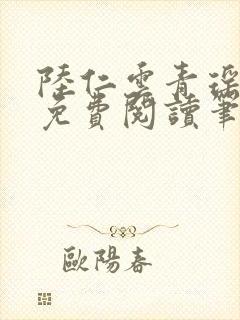 陸仁雲青瑤
免費閱讀筆
歐陽春